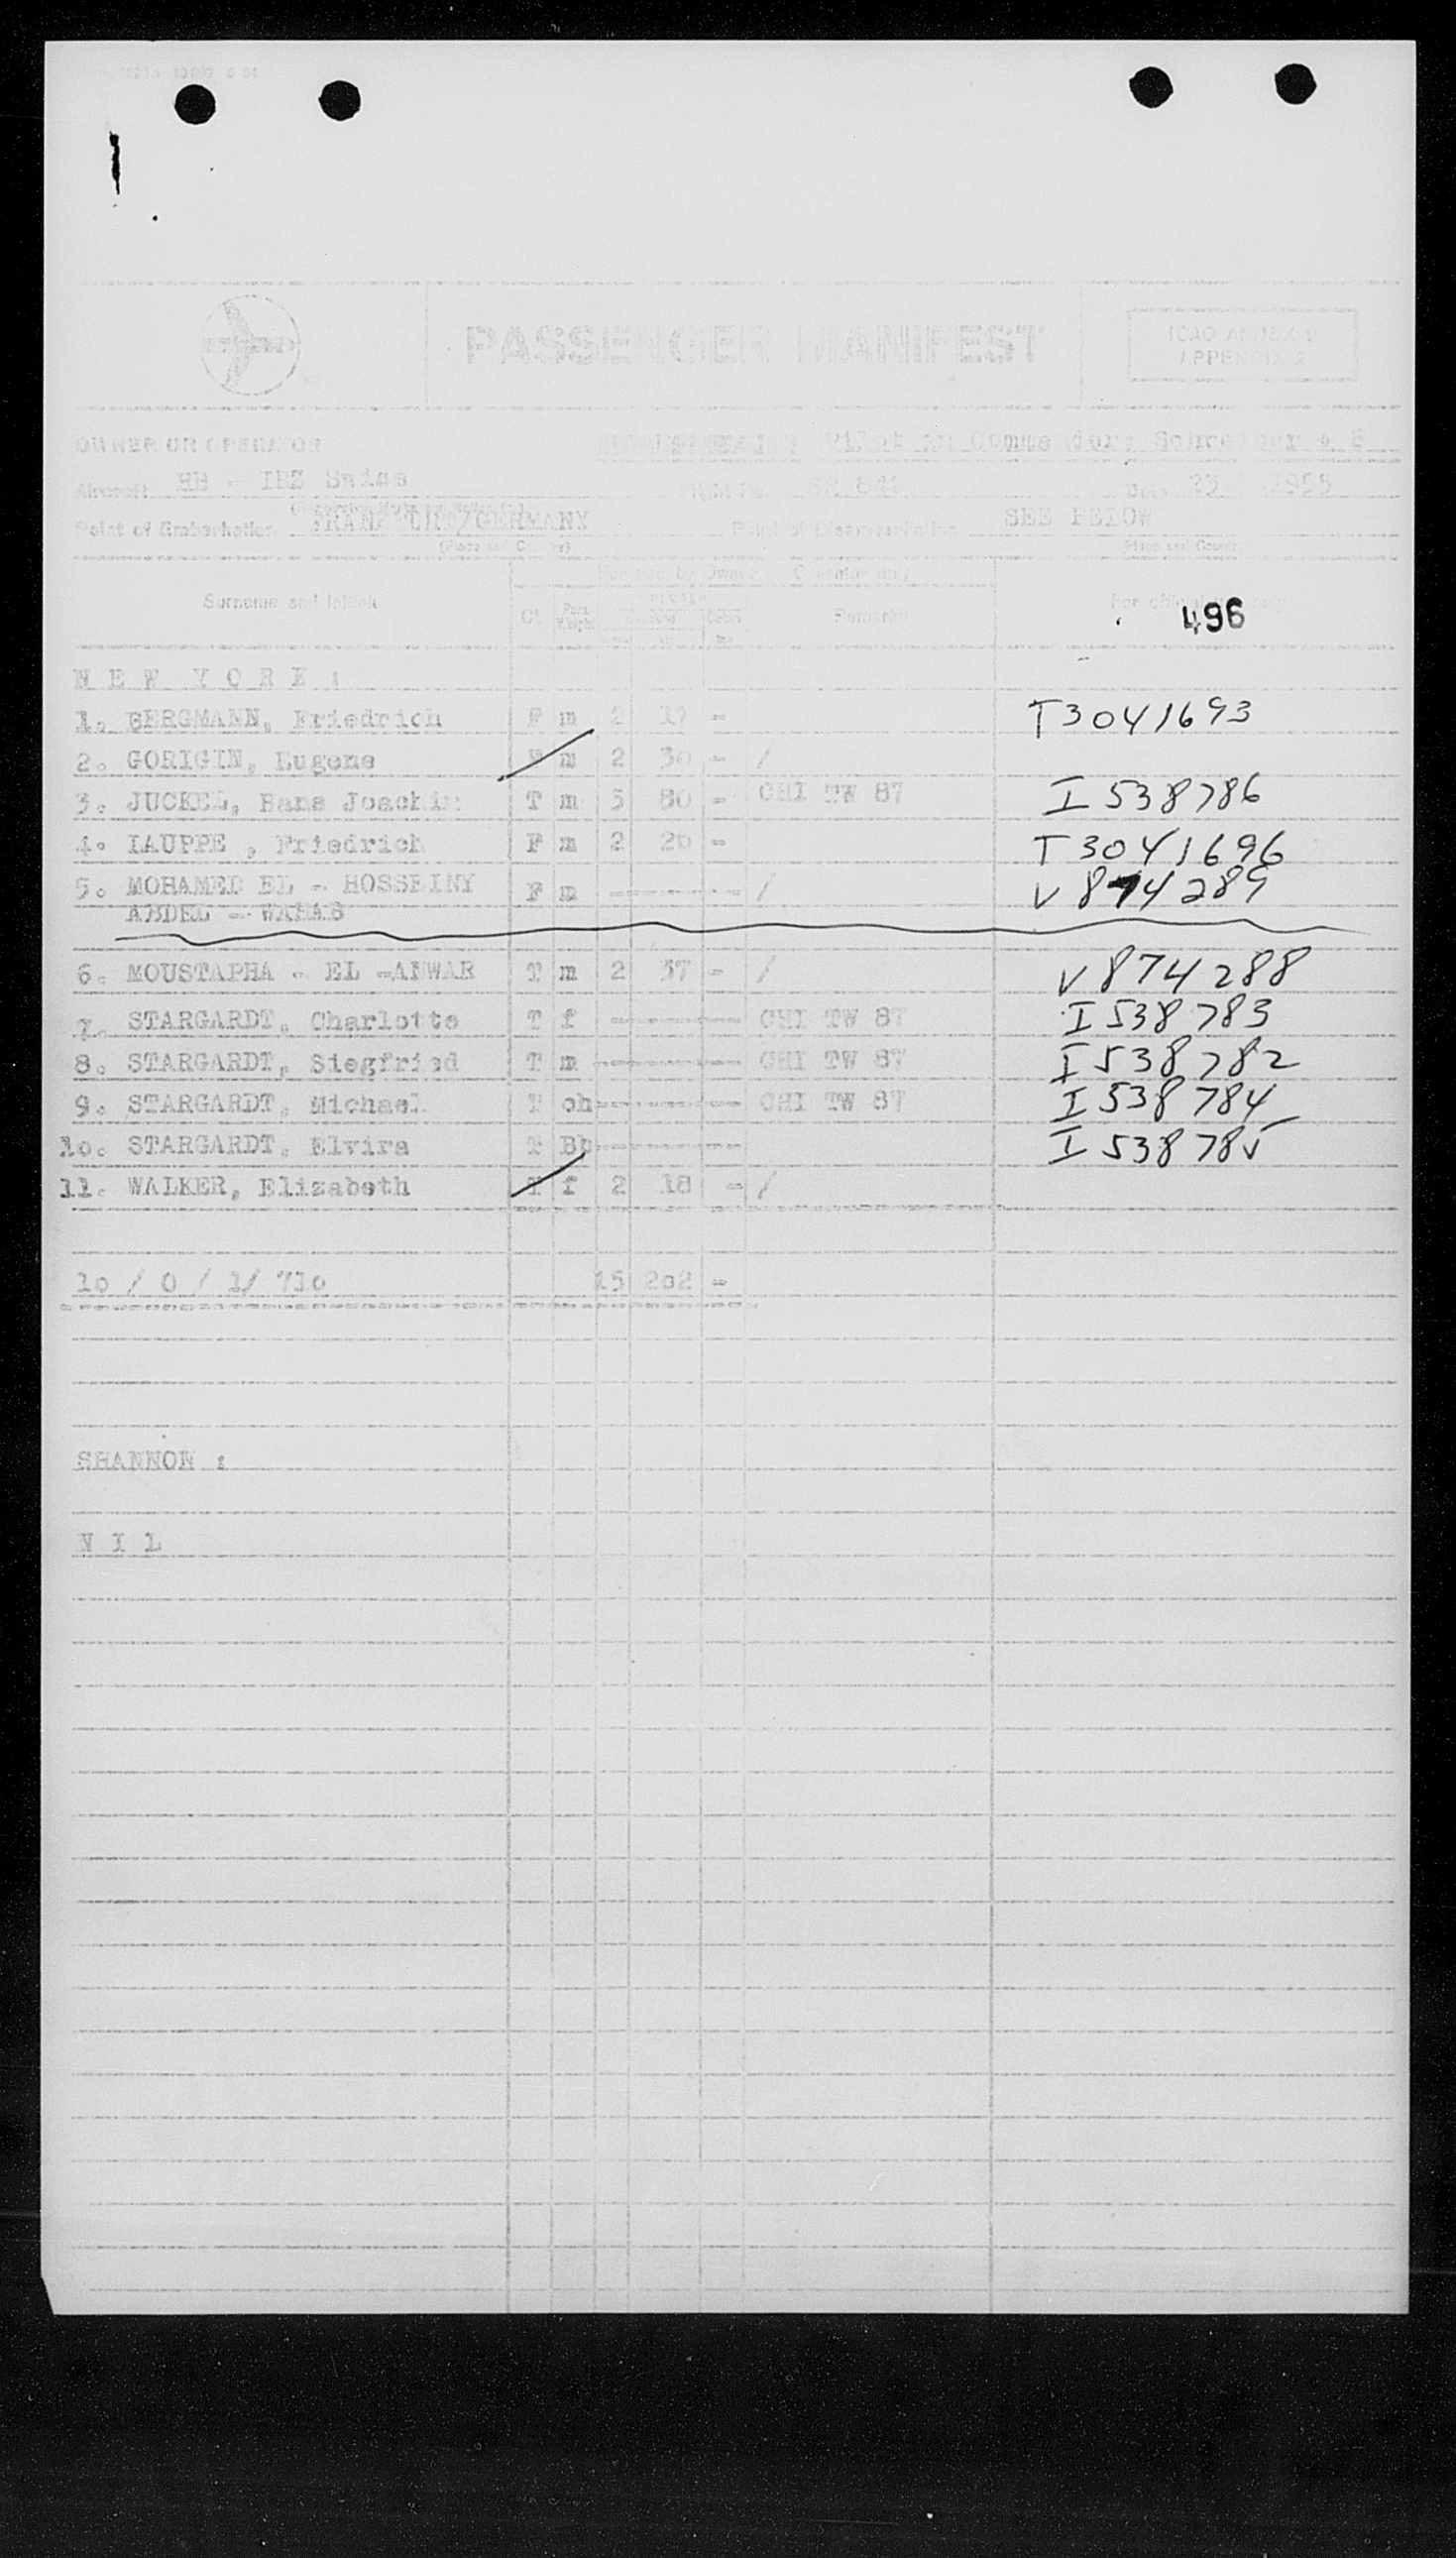 PASSENGER MANIFEST
ICAO ANNEX 9
APPENDIX 2
OWNER OR OPERATOR
Pilot in Command
Aircraft HB - IBZ 1955
Point of Embarkation FRANKFURT/GERMANY Point of Disembarkation SEE BELOW
Surname and Initials Remarks For official use only
496
N E W Y O R K :
1. BERGMANN, Friedrich F m 2 17 - T3041693
2. GORIGIN, Eugene m 2 30 - /
3. JUCKEL, Hans Joachim T m 5 80 - CHI TW 87 I 538786
4. LAUPPE , Friedrich F m 2 20 - T 3041696
5. MOHAMED EL - HOSSEINY F m ------- / V 874289
ABDEL - WAHAB
6. MOUSTAPHA - EL -ANWAR T m 2 37 - / V 874288
7. STARGARDT, Charlotte T f ------- CHI TW 87 I 538783
8. STARGARDT, Siegfried T m ------- CHI TW 87 I 538782
9. STARGARDT, Michael T ch------- CHI TW 87 I 538784
10. STARGARDT, Elvira T Bb------- I 538785
11. WALKER, Elizabeth T f 2 18 - /
10 / 0 / 1/ 710 15 202 -
SHANNON :
N I L